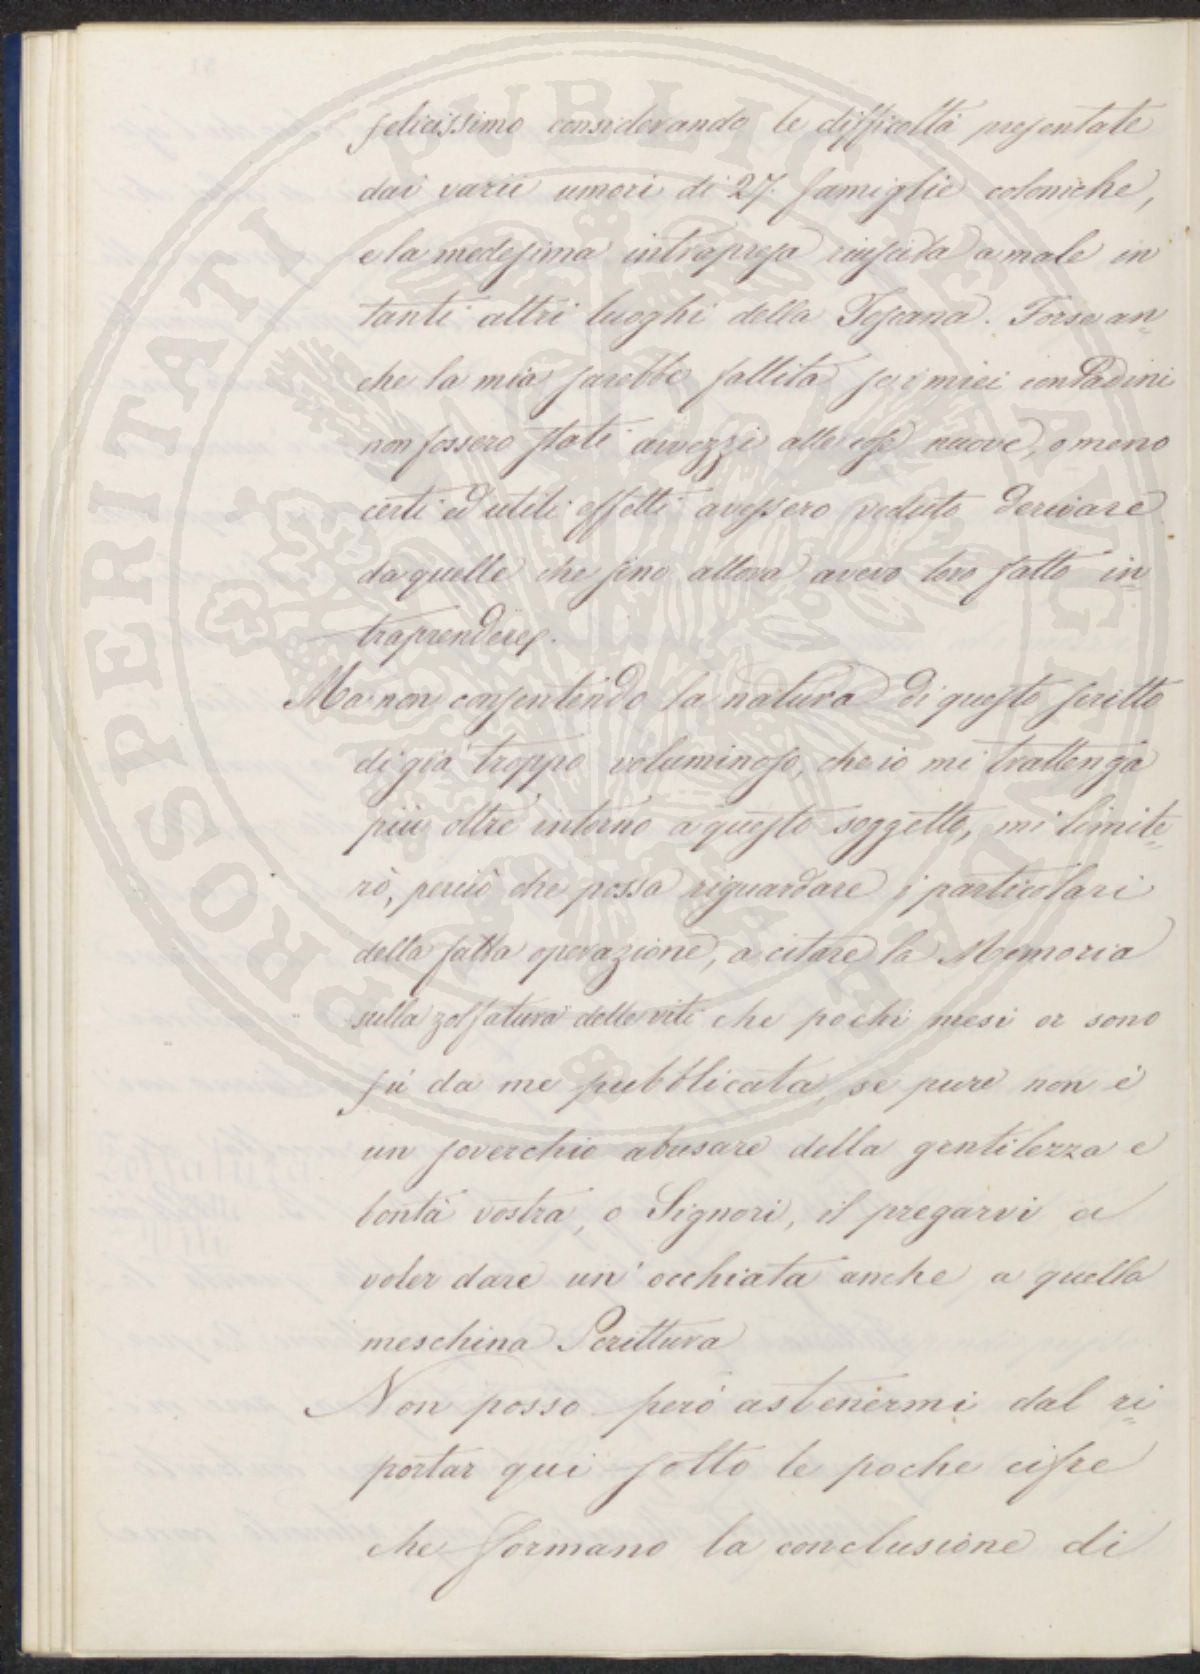 felicissimo considerando le difficoltà presentate
dai varii umori di 27. famiglie coloniche,
e la medesima intrapresa riuscita a male in
tanti altri luoghi della Toscana. Forse an=
che la mia sarebbe fallita se i miei contadini
non fossero stati avvezzi alle cose nuove, o meno
certi ed utili effetti avessero veduto derivare
da quelle che fino allora avevo loro fatto in=
traprendere.
Ma non consentendo la natura di questo scritto
di già troppo voluminoso, che io mi trattenga
più oltre intorno a questo soggetto, mi limite=
rò, perciò che possa riguardare i particolari
della fatta operazione, a citare la Memoria
sulla zolfatura delle viti che pochi mesi or sono
fù da me pubblicata, se pure non è
un soverchio abusare della gentilezza e
bontà vostra, o Signori, il pregarvi a
voler dare un' occhiata anche a quella
meschina Scrittura
Non posso però astenermi dal ri=
portar qui sotto le poche cifre
che formano la conclusione di
PROSPERITATI PUBLICAE AUGENDAE